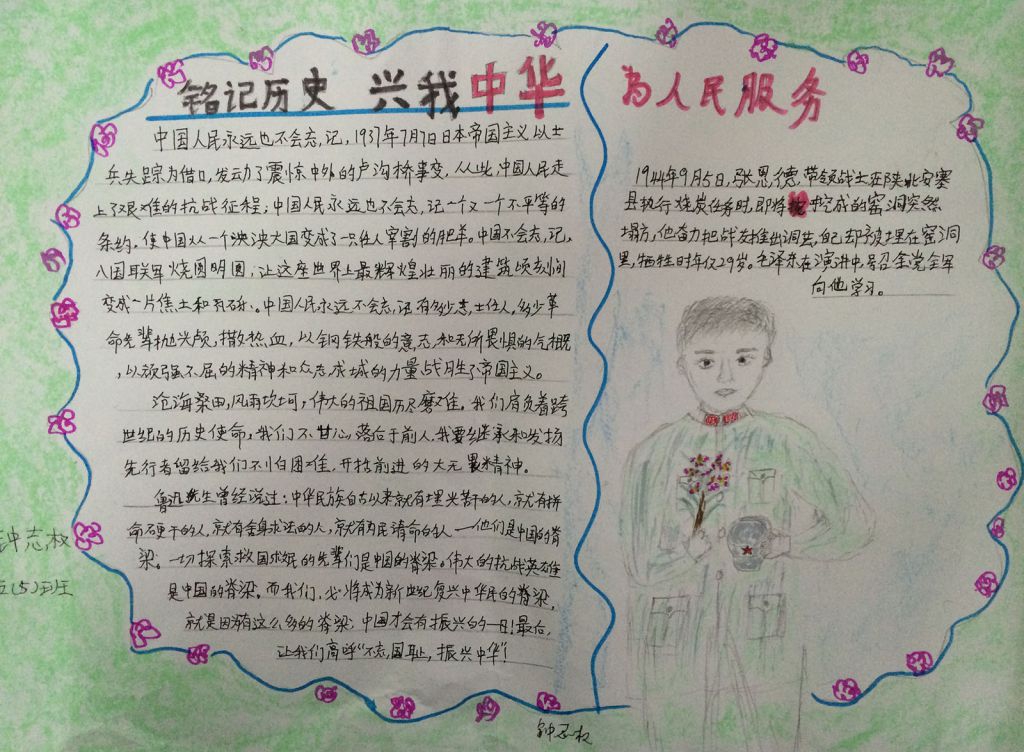 铭记历史 兴我中华
中国人民永远也不会忘记,1937年7月7日日本帝国主义以士
兵失踪为借口,发动了震惊中外的卢沟桥事变,从此,中国人民走
上了艰难的抗战征程;中国人民永远也不会忘记一个又一个不平等的
条约,使中国从一个泱泱大国变成了一只任人宰割的肥羊。中国不会忘记,
八国联军烧圆明圆,让这座世界上最辉煌壮丽的建筑顷刻间
变成一片焦土和瓦砾。中国人民永远不会忘记有多少志士仁人,多少革
命先辈抛头颅,撒热血,以钢铁般的意志和无所畏惧的气概
,以顽强不屈的精神和众志成城的力量战胜了帝国主义。
沧海桑田,风雨坎坷,伟大的祖国历尽磨难。我们肩负着跨
世纪的历史使命,我们不甘心落伍于前人,我要继承和发扬
先行者留给我们不怕困难,开拓前进的大无畏精神。
鲁迅先生曾经说过:中华民族自古以来就有埋头苦干的人,就有拼
命硬干的人,就有舍身求法的人,就有为民请命的人——他们是中国的脊
梁。一切探索救国求民的先辈们是中国的脊梁。伟大的抗战英雄
是中国的脊梁。而我们,必将成为新世纪复兴中华民的脊梁,
就是因为有这么多的脊梁,中国才会有振兴的一日!最后,
让我们高呼“不忘国耻,振兴中华”!
为人民服务
1944年9月5日,张思德带领战士在陕北安塞
县执行烧炭任务时,即将挖成的窑洞突然
塌方,他奋力把战友推出洞去,自己却被埋在窑洞
里,牺牲时年仅29岁。毛泽东在演讲中号召全党全军
向他学习。
钟志权
五(5)班
钟志权